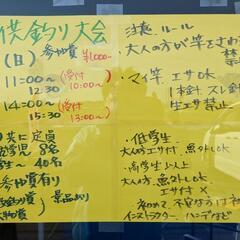 供釣り大会
(日) 参加費 ¥1000-
11:00～ (受付
12:30 10:00～)
14:00～ (受付
15:00 13:00～)
共に定員
学児 8名
学生 - 40名
参加賞有り
注意、ルール
・大人の方が竿をさわ
禁
・マイ竿、エサOK
1本針、スレ針
生エサ禁止
・低学生
大人の方エサ付、魚外しOK
・高学生以上
大人の方、魚外しOK
エサ付 ×
・初めて、不安な方は
インストラクター、ハンデなど